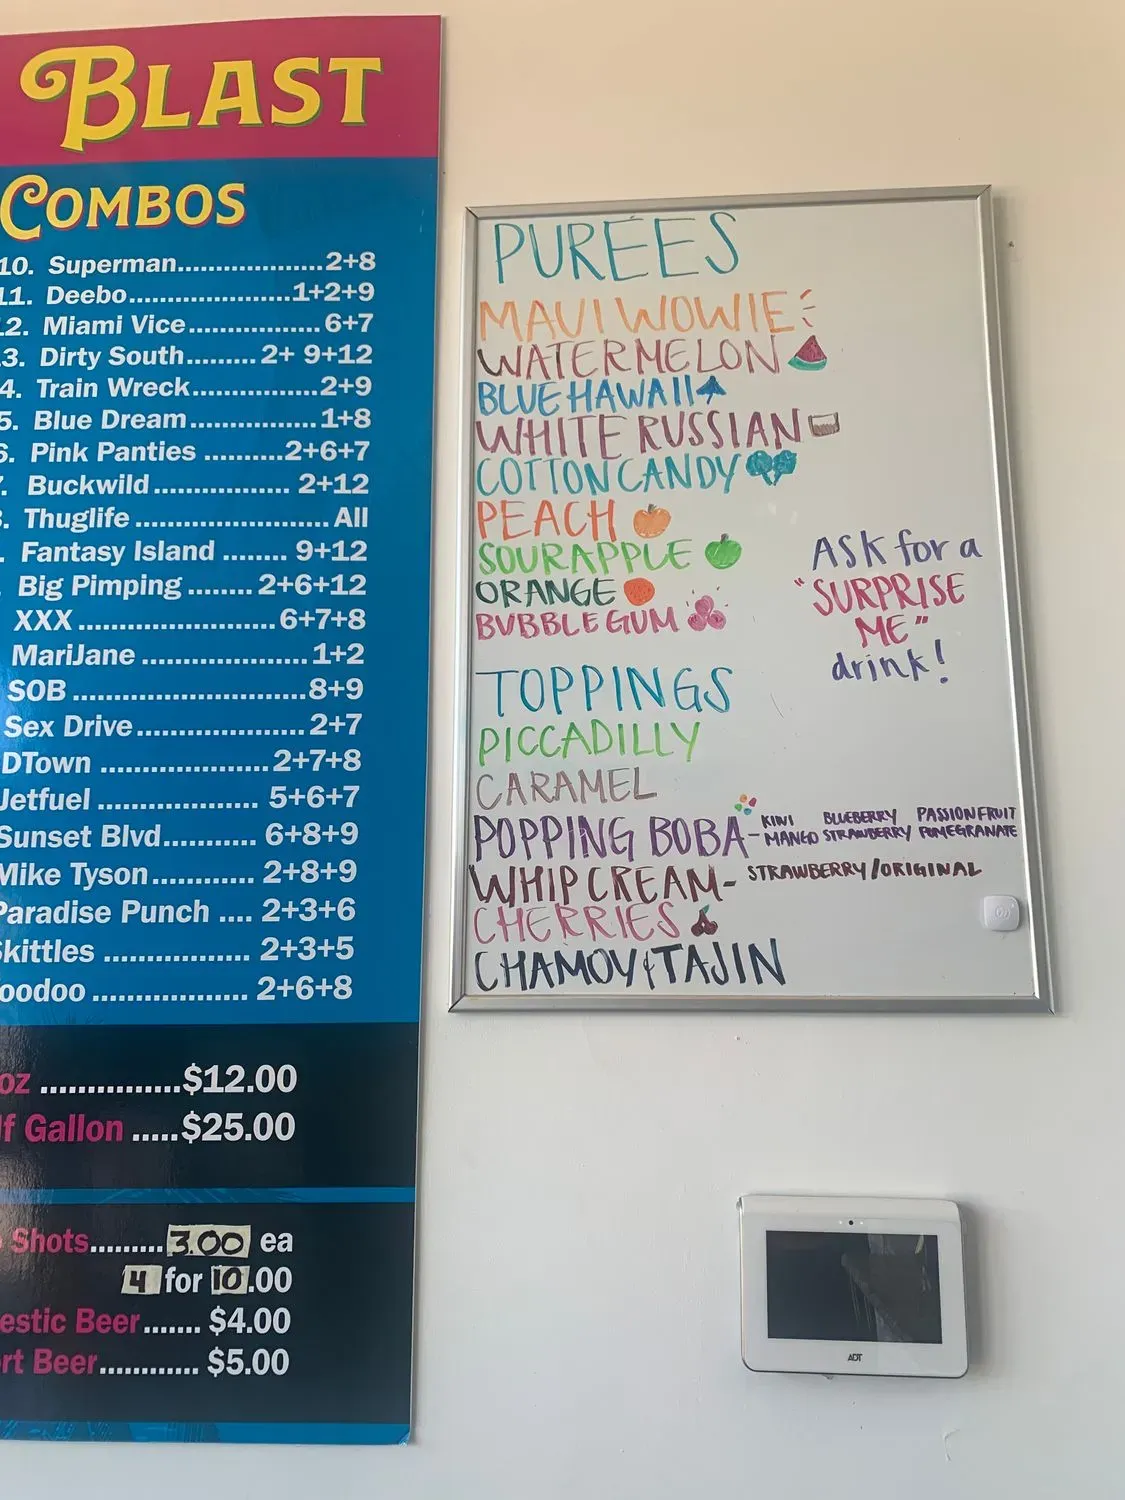 BLAST
COMBOS
10. Superman......................2+8
11. Deebo.........................1+2+9
2. Miami Vice.....................6+7
3. Dirty South......... 2+ 9+12
4. Train Wreck....................2+9
5. Blue Dream....................1+8
6. Pink Panties ..........2+6+7
. Buckwild..................... 2+12
. Thuglife ............................. All
. Fantasy Island ........ 9+12
Big Pimping ........ 2+6+12
XXX ..............................6+7+8
MariJane .........................1+2
SOB ...................................8+9
Sex Drive..........................2+7
DTown ..........................2+7+8
Jetfuel ....................... 5+6+7
Sunset Blvd............... 6+8+9
Mike Tyson................ 2+8+9
Paradise Punch .... 2+3+6
Skittles ..................... 2+3+5
oodoo ....................... 2+6+8
oz ...............$12.00
lf Gallon .....$25.00
Shots.........3.00 ea
4 for 10.00
estic Beer....... $4.00
rt Beer............ $5.00
PURÉES
MAUI WOWIE
WATERMELON
BLUE HAWAII
WHITE RUSSIAN
COTTON CANDY
PEACH
SOUR APPLE
ORANGE
BUBBLE GUM
ASK for a
"SURPRISE
ME"
drink!
TOPPINGS
PICCADILLY
CARAMEL
POPPING BOBA- KIWI BLUEBERRY PASSIONFRUIT
MANGO STRAWBERRY POMEGRANATE
WHIP CREAM- STRAWBERRY/ORIGINAL
CHERRIES
CHAMOY & TAJIN
ADT